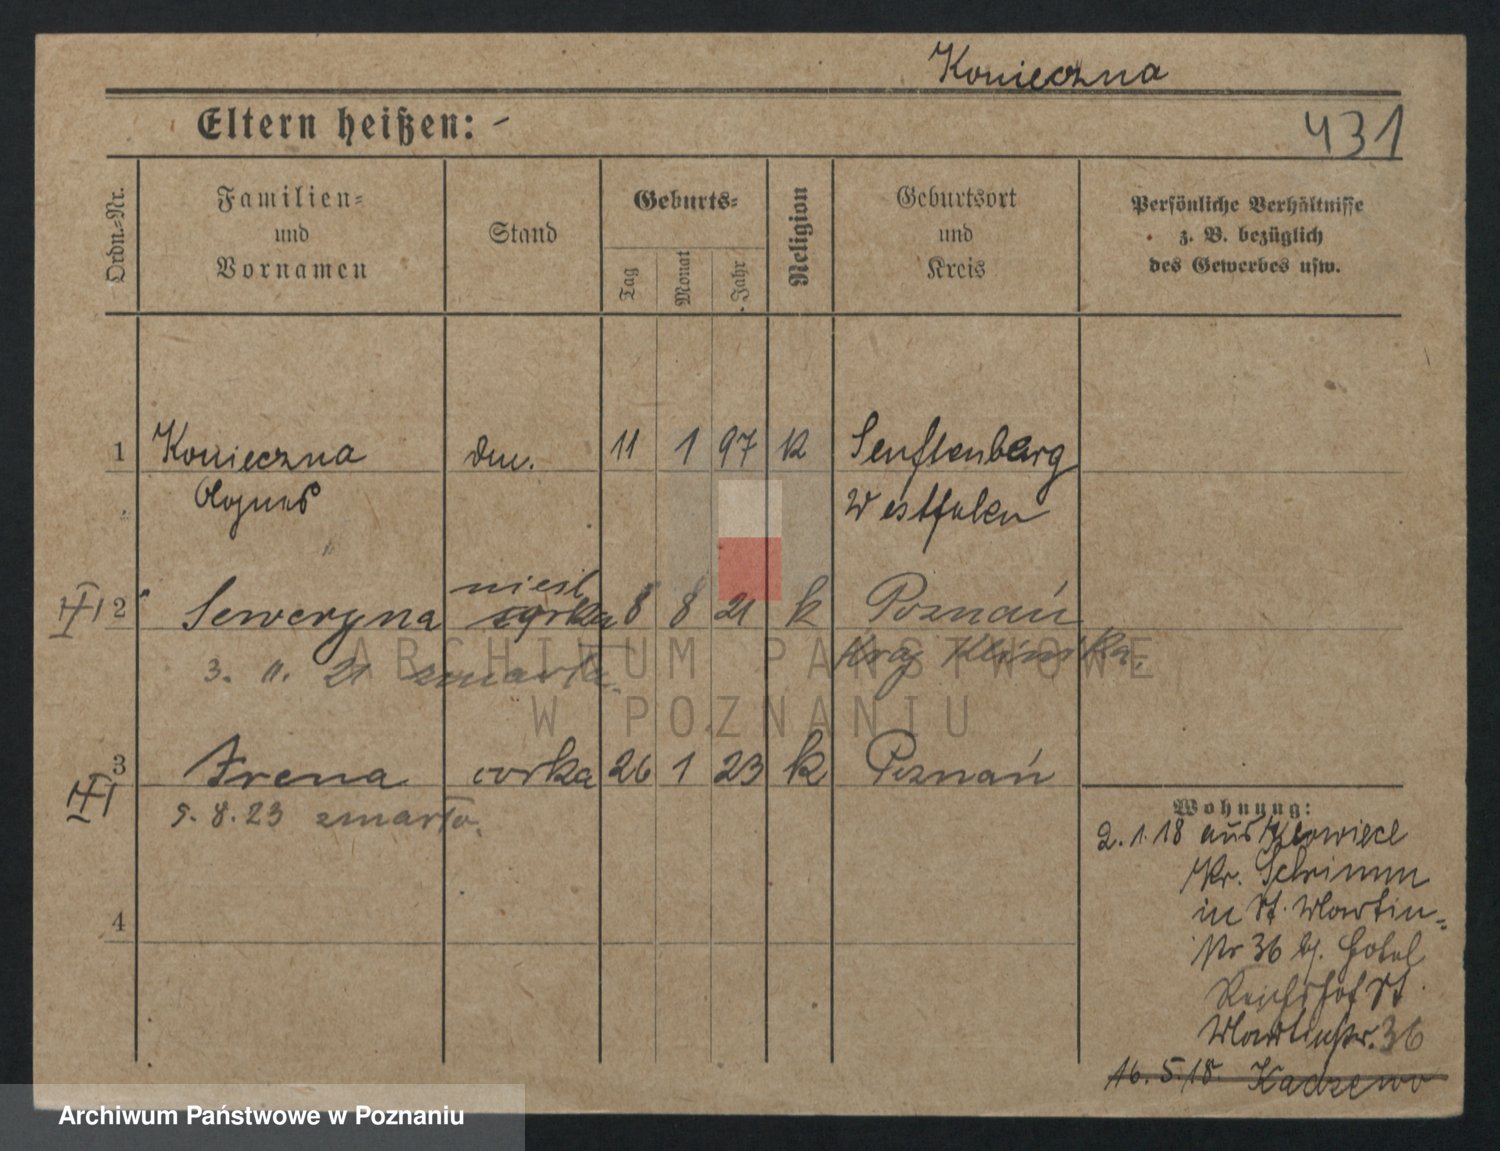 Konieczna
Eltern heißen: -
431
Ordn.-Nr.
Familien-
und
Vornamen
Stand
Geburts-
Tag
Monat
Jahr
Religion
Geburtsort
und
Kreis
Persönliche Verhältnisse
z. B. bezüglich
des Gewerbes usw.
1 Konieczna 11 1 97 k Senftenberg
Agnes Westfalen
2 Seweryna nieśl. córka 8 8 21 k Poznań
3. 11. 21 zmarła. Kraj. Klinika.
3 Irena córka 26 1 23 k Poznań
5. 8. 23 zmarła.
4
Wohnung:
2.1.18 aus
Kr. Schrimm
in St. Martin-
Nr 36 Hotel
Reichshof St.
Martinstr. 36
16.5.18. Kadzewo
ARCHIWUM PAŃSTWOWE
W POZNANIU
Archiwum Państwowe w Poznaniu